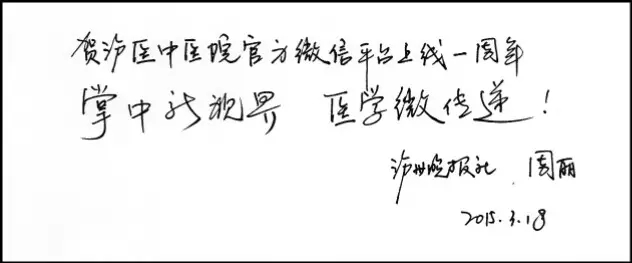 贺泸医中医院官方微信平台上线一周年
掌中新视界 医学微传递!
泸州晚报社 周丽
2015.3.18